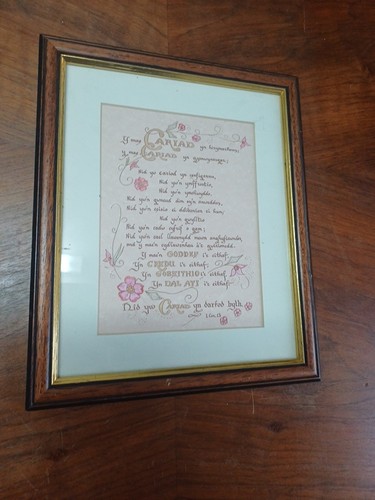 Y mae CARIAD yn hirymarhous;
y mae CARIAD yn gymwynasgar;
Nid yw cariad yn cenfigennu,
Nid yw'n ymffrostio,
Nid yw'n ymchwyddo,
Nid yw'n gwneud dim sy'n anweddus,
Nid yw'n ceisio ei ddibenion ei hun,
Nid yw'n gwylltio
Nid yw'n cadw cyfrif o gam;
Nid yw'n cael llawenydd mewn anghyfiawnder,
ond y mae'n cydlawenhau â'r gwirionedd.
Y mae'n GODDEF i'r eithaf,
Yn CREDU i'r eithaf,
Yn GOBEITHIO i'r eithaf,
Yn DAL ATI i'r eithaf.
Nid yw CARIAD yn darfod byth.
1 Cor. 13